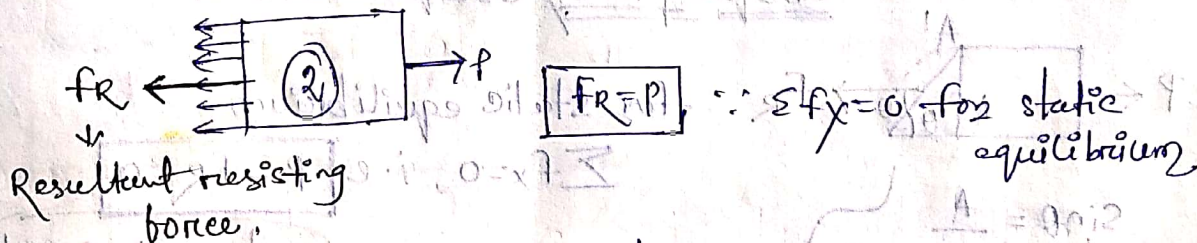 ②
fR
P
fR = P, ∵ Σfx = 0 for static
equilibrium
Resultant resisting
force.